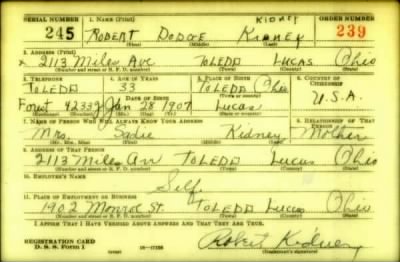 SERIAL NUMBER
1. NAME (Print)
KIDNEY
ORDER NUMBER
245
ROBERT DODGE KIDNEY
239
(First) (Middle) (Last)
2. ADDRESS (Print)
x 2113 Miles Ave TOLEDO LUCAS Ohio
(Number and street or R. F. D. number) (Town) (County) (State)
3. TELEPHONE
4. AGE IN YEARS
5. PLACE OF BIRTH
6. COUNTRY OF CITIZENSHIP
TOLEDO
33
TOLEDO Ohio
DATE OF BIRTH
(Town or county)
Forest 42339
Jan 28 1907
Lucas
U.S.A.
(Exchange) (Number)
(Mo.) (Day) (Yr.)
(State or country)
7. NAME OF PERSON WHO WILL ALWAYS KNOW YOUR ADDRESS
8. RELATIONSHIP OF THAT PERSON
Mrs. Sadie Kidney Mother
(Mr., Mrs., Miss) (First) (Middle) (Last)
9. ADDRESS OF THAT PERSON
2113 Miles Ave TOLEDO Lucus Ohio
(Number and street or R. F. D. number) (Town) (County) (State)
10. EMPLOYER'S NAME
Self
11. PLACE OF EMPLOYMENT OR BUSINESS
1902 Monroe St. TOLEDO Lucus Ohio
(Number and street or R. F. D. number) (Town) (County) (State)
I AFFIRM THAT I HAVE VERIFIED ABOVE ANSWERS AND THAT THEY ARE TRUE.
REGISTRATION CARD
D. S. S. Form 1
(over)
Robert Kidney
(Registrant's signature)